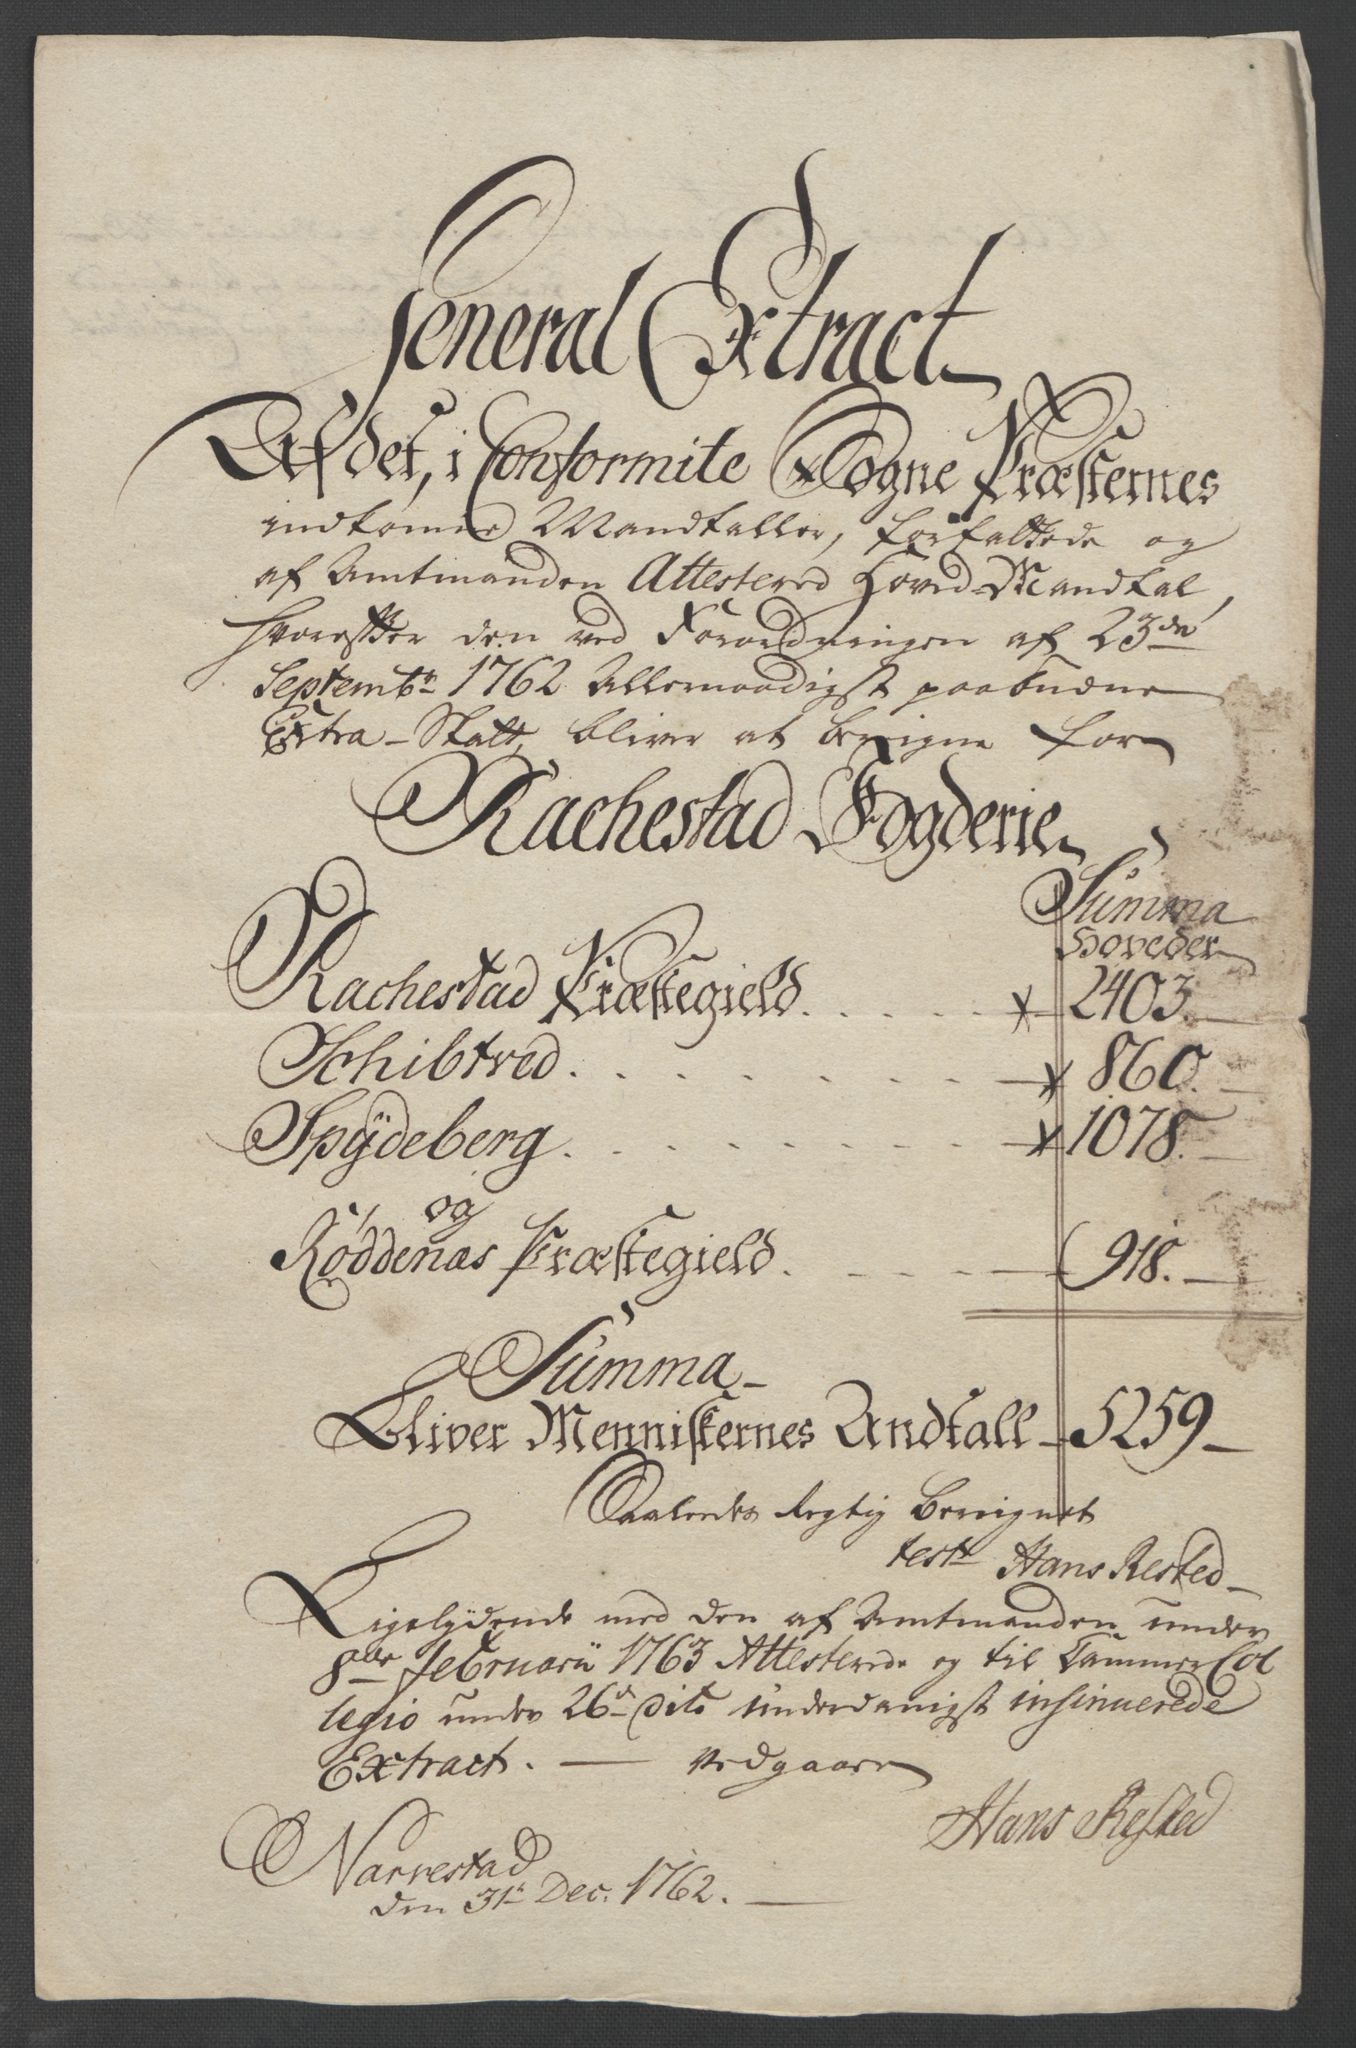 General Extract
Af det, i Conformite Sogne Præsternes
indkomne Mandtaller, forfattede og
af Amtmanden Attestered Hoved-Mandtal,
hvorefter den ved Forordningen af 23de
Septembr 1762 Allernaadigst paabudne
Extra-Skatt, bliver at beregne for
Rachestad Fogderie
Summa
Hoveder
Rachestad Præstegield . . . . . 2403.
Schibtved . . . . . . . . 860.
Spÿdeberg . . . . . . . . 1078.
og
Røddenæs Præstegield . . . . 918.
Summa
Bliver Menniskernes Andtall 5259
Saaledes Rigtig Beregnet
test Hans Rested
Ligelydende med den af Amtmanden under
8de Februarii 1763 Attesterede og til Cammer Col
legio under 26d Dito underdanigst insinuerede
Extract. — Vedgaaer
Hans Rested
Narvestad
den 31te Dec. 1762.